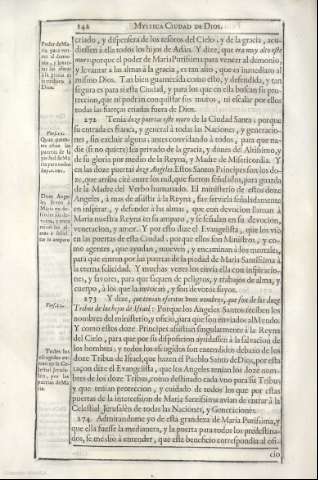 142 MYSTICA CIUDAD DE DIOS.
criado, y dispensera de los tesoros del Cielo, y de la gracia, acu-
diessen à ella todos los hijos de Adan. Y dize, que era muy alto este
muro: porque el poder de Maria Purissima para vencer al demonio,
y levantar à las almas à la gracia, es tan alto, que es inmediato al
mismo Dios. Tan bien guarnecida como esto, y defendida, y tan
segura es para sì esta Ciudad, y para los que en ella buscan su pro-
teccion, que ni podràn conquistar sus muros, ni escalar por ellos
todas las fuerças criadas fuera de Dios.
272 Tenia doze puertas este muro de la Ciudad Santa; porque
su entrada es franca, y general à todas las Naciones, y generacio-
nes, sin excluir alguna: antes convidando à todos, para que na-
die (si no quiere) sea privado de la gracia, y dones del Altissimo, y
de su gloria por medio de la Reyna, y Madre de Misericordia. Y
en las doze puertas doze Angeles. Estos Santos Principes son los do-
ze, que arriba citè entre los mil, que fueron señalados, para guarda
de la Madre del Verbo humanado. El ministerio de estos doze
Angeles, à mas de assistir à la Reyna, fue servirla señaladamente
en inspirar, y defender à las almas, que con devocion llaman à
Maria nuestra Reyna en su amparo, y se señalan en su devocion,
veneracion, y amor. Y por esto dize el Evangelista, que los viò
en las puertas de esta Ciudad, porque ellos son Ministros, y co-
mo agentes, que ayudan, mueven, y encaminan à los mortales,
para que entren por las puertas de la piedad de Maria Santissima à
la eterna felicidad. Y muchas vezes los envia ella con inspiracio-
nes, y favores, para que saquen de peligros, y trabajos de alma, y
cuerpo, à los que la invocan, y son devotos suyos.
273 Y dize, que tenian escritos unos nombres, que son de los doze
Tribus de los hijos de Israel: Porque los Angeles Santos reciben los
nombres del ministerio, y oficio, para que son enviados al Mundo.
Y como estos doze Principes assistian singularmente à la Reyna
del Cielo, para que por su disposicion ayudassen à la salvacion de
los hombres; y todos los escogidos son entendidos debaxo de los
doze Tribus de Israel, que hazen el Pueblo Santo de Dios, por esta
raçon dize el Evangelista, que los Angeles tenian los doze nom-
bres de los doze Tribus, como destinado cada uno para su Tribu;
y que tenian proteccion, y cuidado de todos los que por estas
puertas de la intercession de Maria Santissima avian de entrar à la
Celestial Jerusalèn de todas las Naciones, y Generaciones.
274 Admirandome yo de esta grandeza de Maria Purissima, y
que ella fuesse la medianera, y la puerta para todos los predestina-
dos, se me diò à entender, que este beneficio correspondia al ofi-
cio
Poder de Ma-
ria para ven-
cer al demo-
nio, y levan-
tar las almas
à la gracia es
inmediato à
Dios.
Versic.
Doze Ange-
Versic.
Todos los